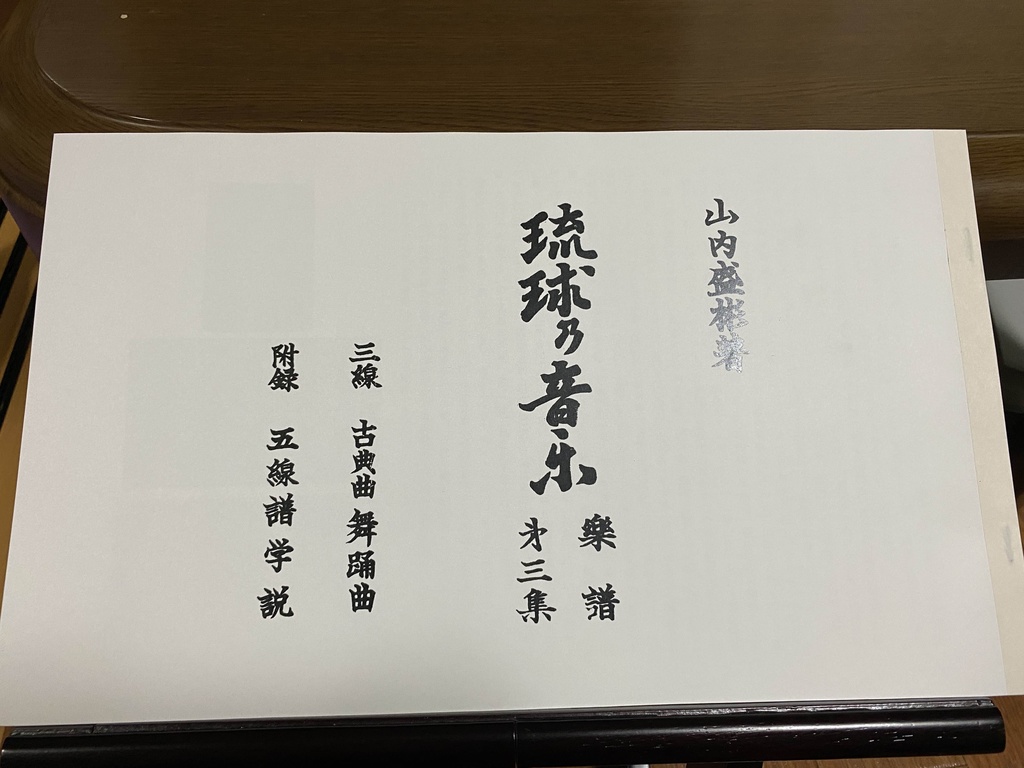 山内盛彬著
琉球乃音乐
樂譜
才三集
三線 古典曲 舞踊曲
附録 五線譜学説